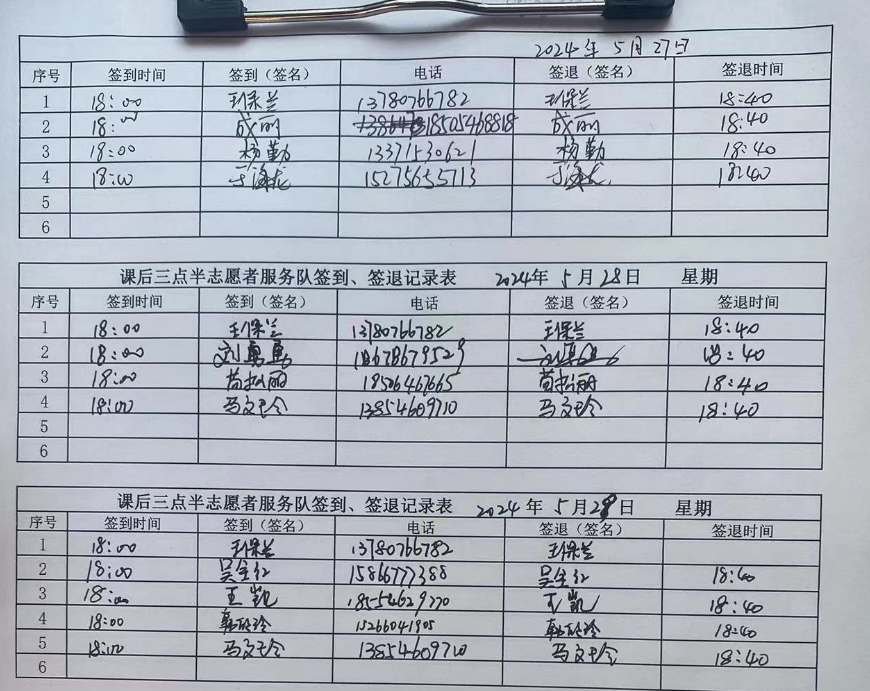 2024年 5月27日
序号 签到时间 签到（签名） 电话 签退（签名） 签退时间
1 18:00 王保兰 13780766782 王保兰 18:40
2 18:00 成丽 18505468818 成丽 18:40
3 18:00 杨勤 13371530621 杨勤 18:40
4 18:00 15275655713 18:40
5
6
课后三点半志愿者服务队签到、签退记录表 2024年 5月28日 星期
序号 签到时间 签到（签名） 电话 签退（签名） 签退时间
1 18:00 王保兰 13780766782 王保兰 18:40
2 18:00 18678679529 18:40
3 18:00 18526467665 18:40
4 18:00 13854609710 18:40
5
6
课后三点半志愿者服务队签到、签退记录表 2024年 5月28日 星期
序号 签到时间 签到（签名） 电话 签退（签名） 签退时间
1 18:00 王保兰 13780766782 王保兰
2 18:00 15866777388 18:40
3 18:00 王凯 18554629770 王凯 18:40
4 18:00 韩欣玲 15266041905 韩欣玲 18:40
5 18:00 13854609710 18:40
6